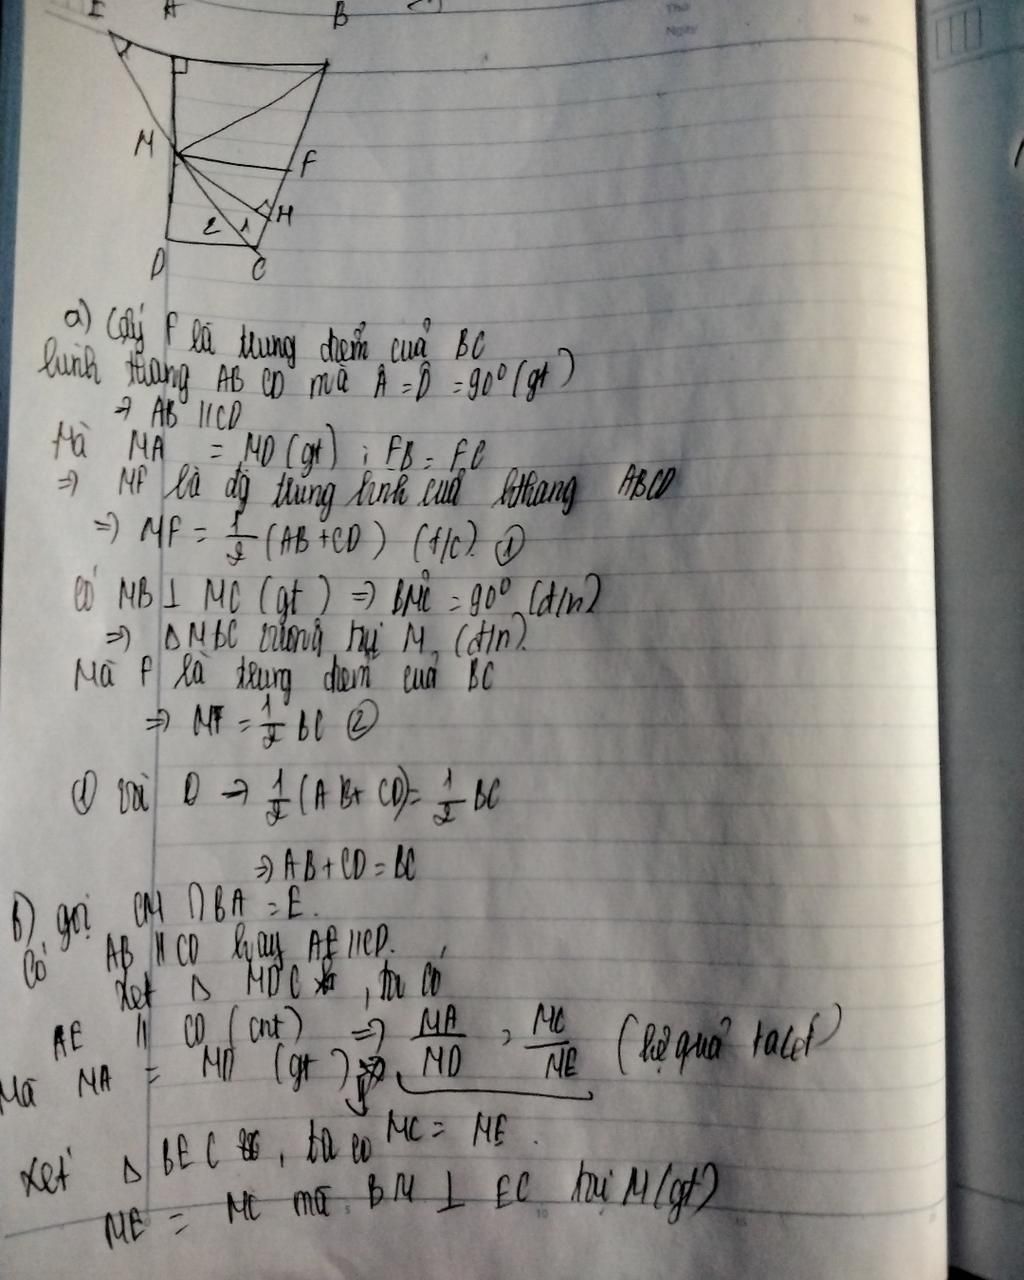 E A B
M
F
H
2 1
D C
a) Lấy F là trung điểm của BC
hình thang AB CD mà Â = D̂ = 90° (gt)
⇒ AB // CD
Mà MA = MD (gt) ; FB = FC
⇒ MF là đg trung bình của hthang ABCD
⇒ MF = 1/2 (AB + CD) (t/c) ①
Có MB ⊥ MC (gt) ⇒ BMC = 90° (đ/n)
⇒ Δ MBC vuông tại M (đ/n)
Mà F là trung điểm của BC
⇒ MF = 1/2 BC ②
① và ⇒ 1/2 (AB + CD) = 1/2 BC
⇒ AB + CD = BC
b) gọi CM ∩ BA = E.
Có AB // CD hay AE // CD.
Xét Δ MDC , ta có
AE // CD (cmt) ⇒ MA/MD = MC/ME (hệ quả talet)
Mà MA = MD (gt)
⇓ MC = ME .
Xét Δ BEC , ta có
ME = MC mà BM ⊥ EC tại M (gt)